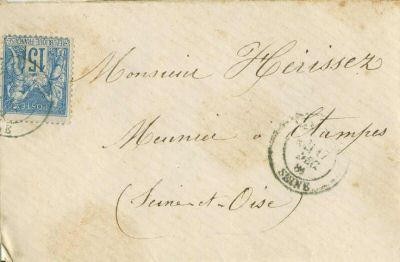 15
POSTES
Monsieur Hérissez
Meunier à Etampes
(Seine-et-Oise)
DEC
SEINE